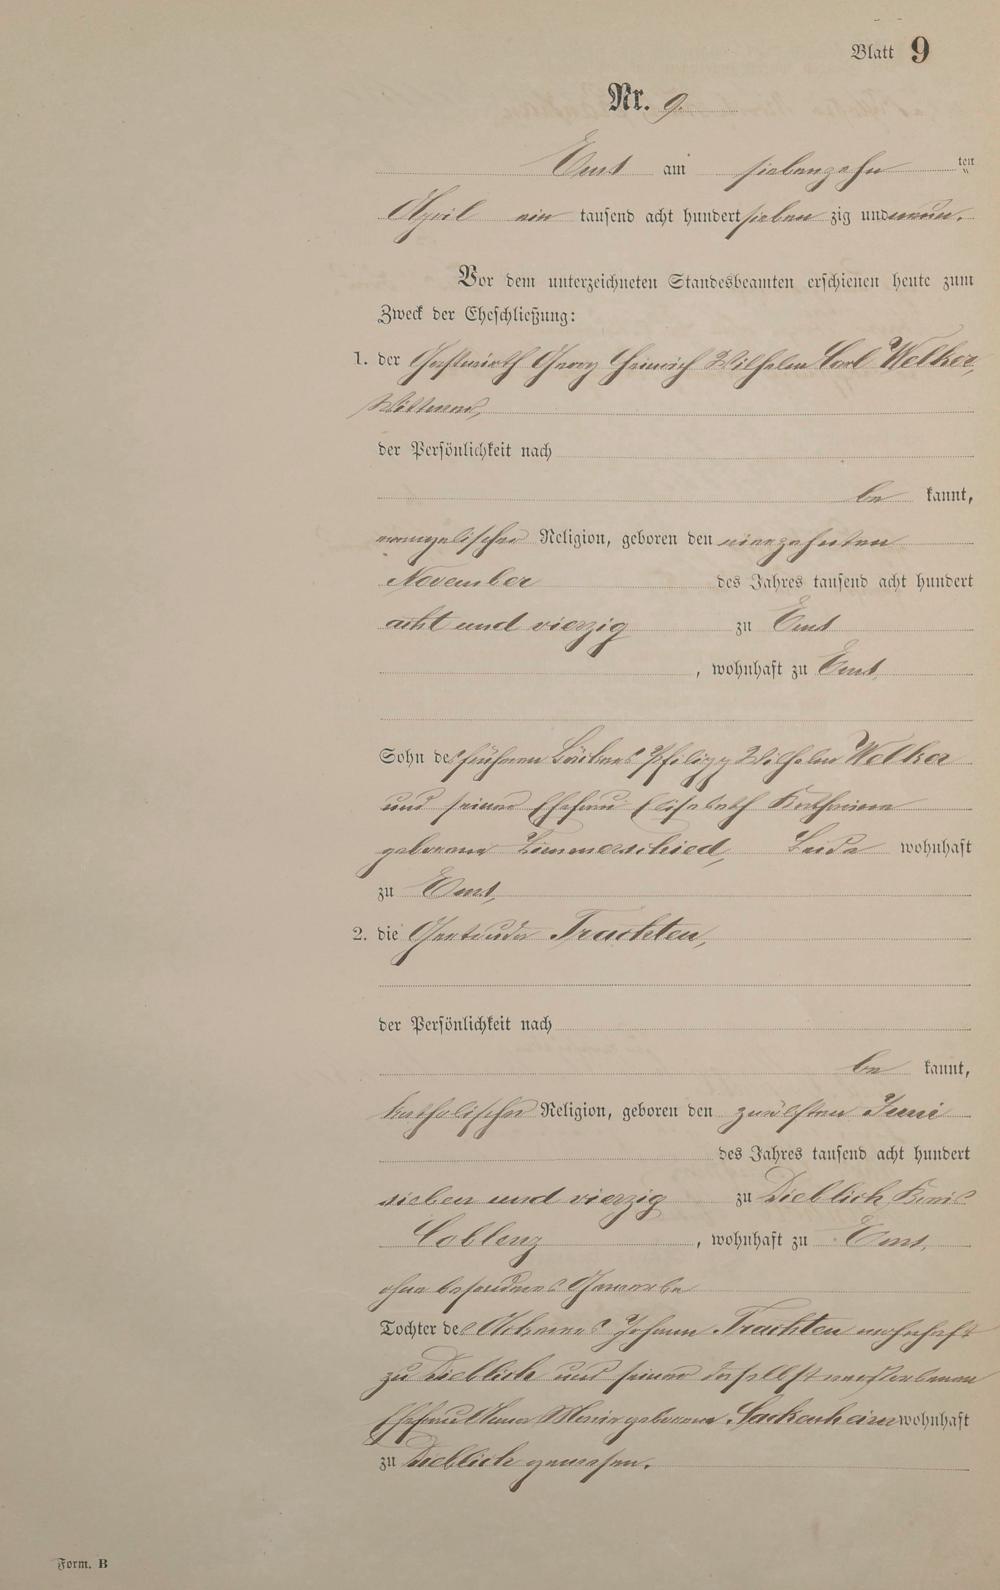 Blatt 9
Nr. 9.
Ems am siebenzehn ten
April ein tausend acht hundert sieben zig und neun.
Vor dem unterzeichneten Standesbeamten erschienen heute zum
Zweck der Eheschließung:
1. der Gastwirth Georg Heinrich Wilhelm Carl Welker,
Wittwer,
der Persönlichkeit nach
be kannt,
evangelischer Religion, geboren den vierzehnten
November des Jahres tausend acht hundert
acht und vierzig zu Ems
, wohnhaft zu Ems,
Sohn des früheren Bäckers Philipp Wilhelm Welker
und seiner Ehefrau Elisabeth Katharina
geborene Zimmerschied, Beide wohnhaft
zu Ems,
2. die Gertruda Trachten,
der Persönlichkeit nach
be kannt,
katholischer Religion, geboren den zwölften Juni
des Jahres tausend acht hundert
sieben und vierzig zu Dieblich Kreis
Coblenz , wohnhaft zu Ems,
ohne besonderes Gewerbe
Tochter des Ackerers Johann Trachten wohnhaft
zu Dieblich und seiner daselbst verstorbenen
Ehefrau Anna Maria geborene Sackenheim wohnhaft
zu Dieblich gewesen.
Form. B